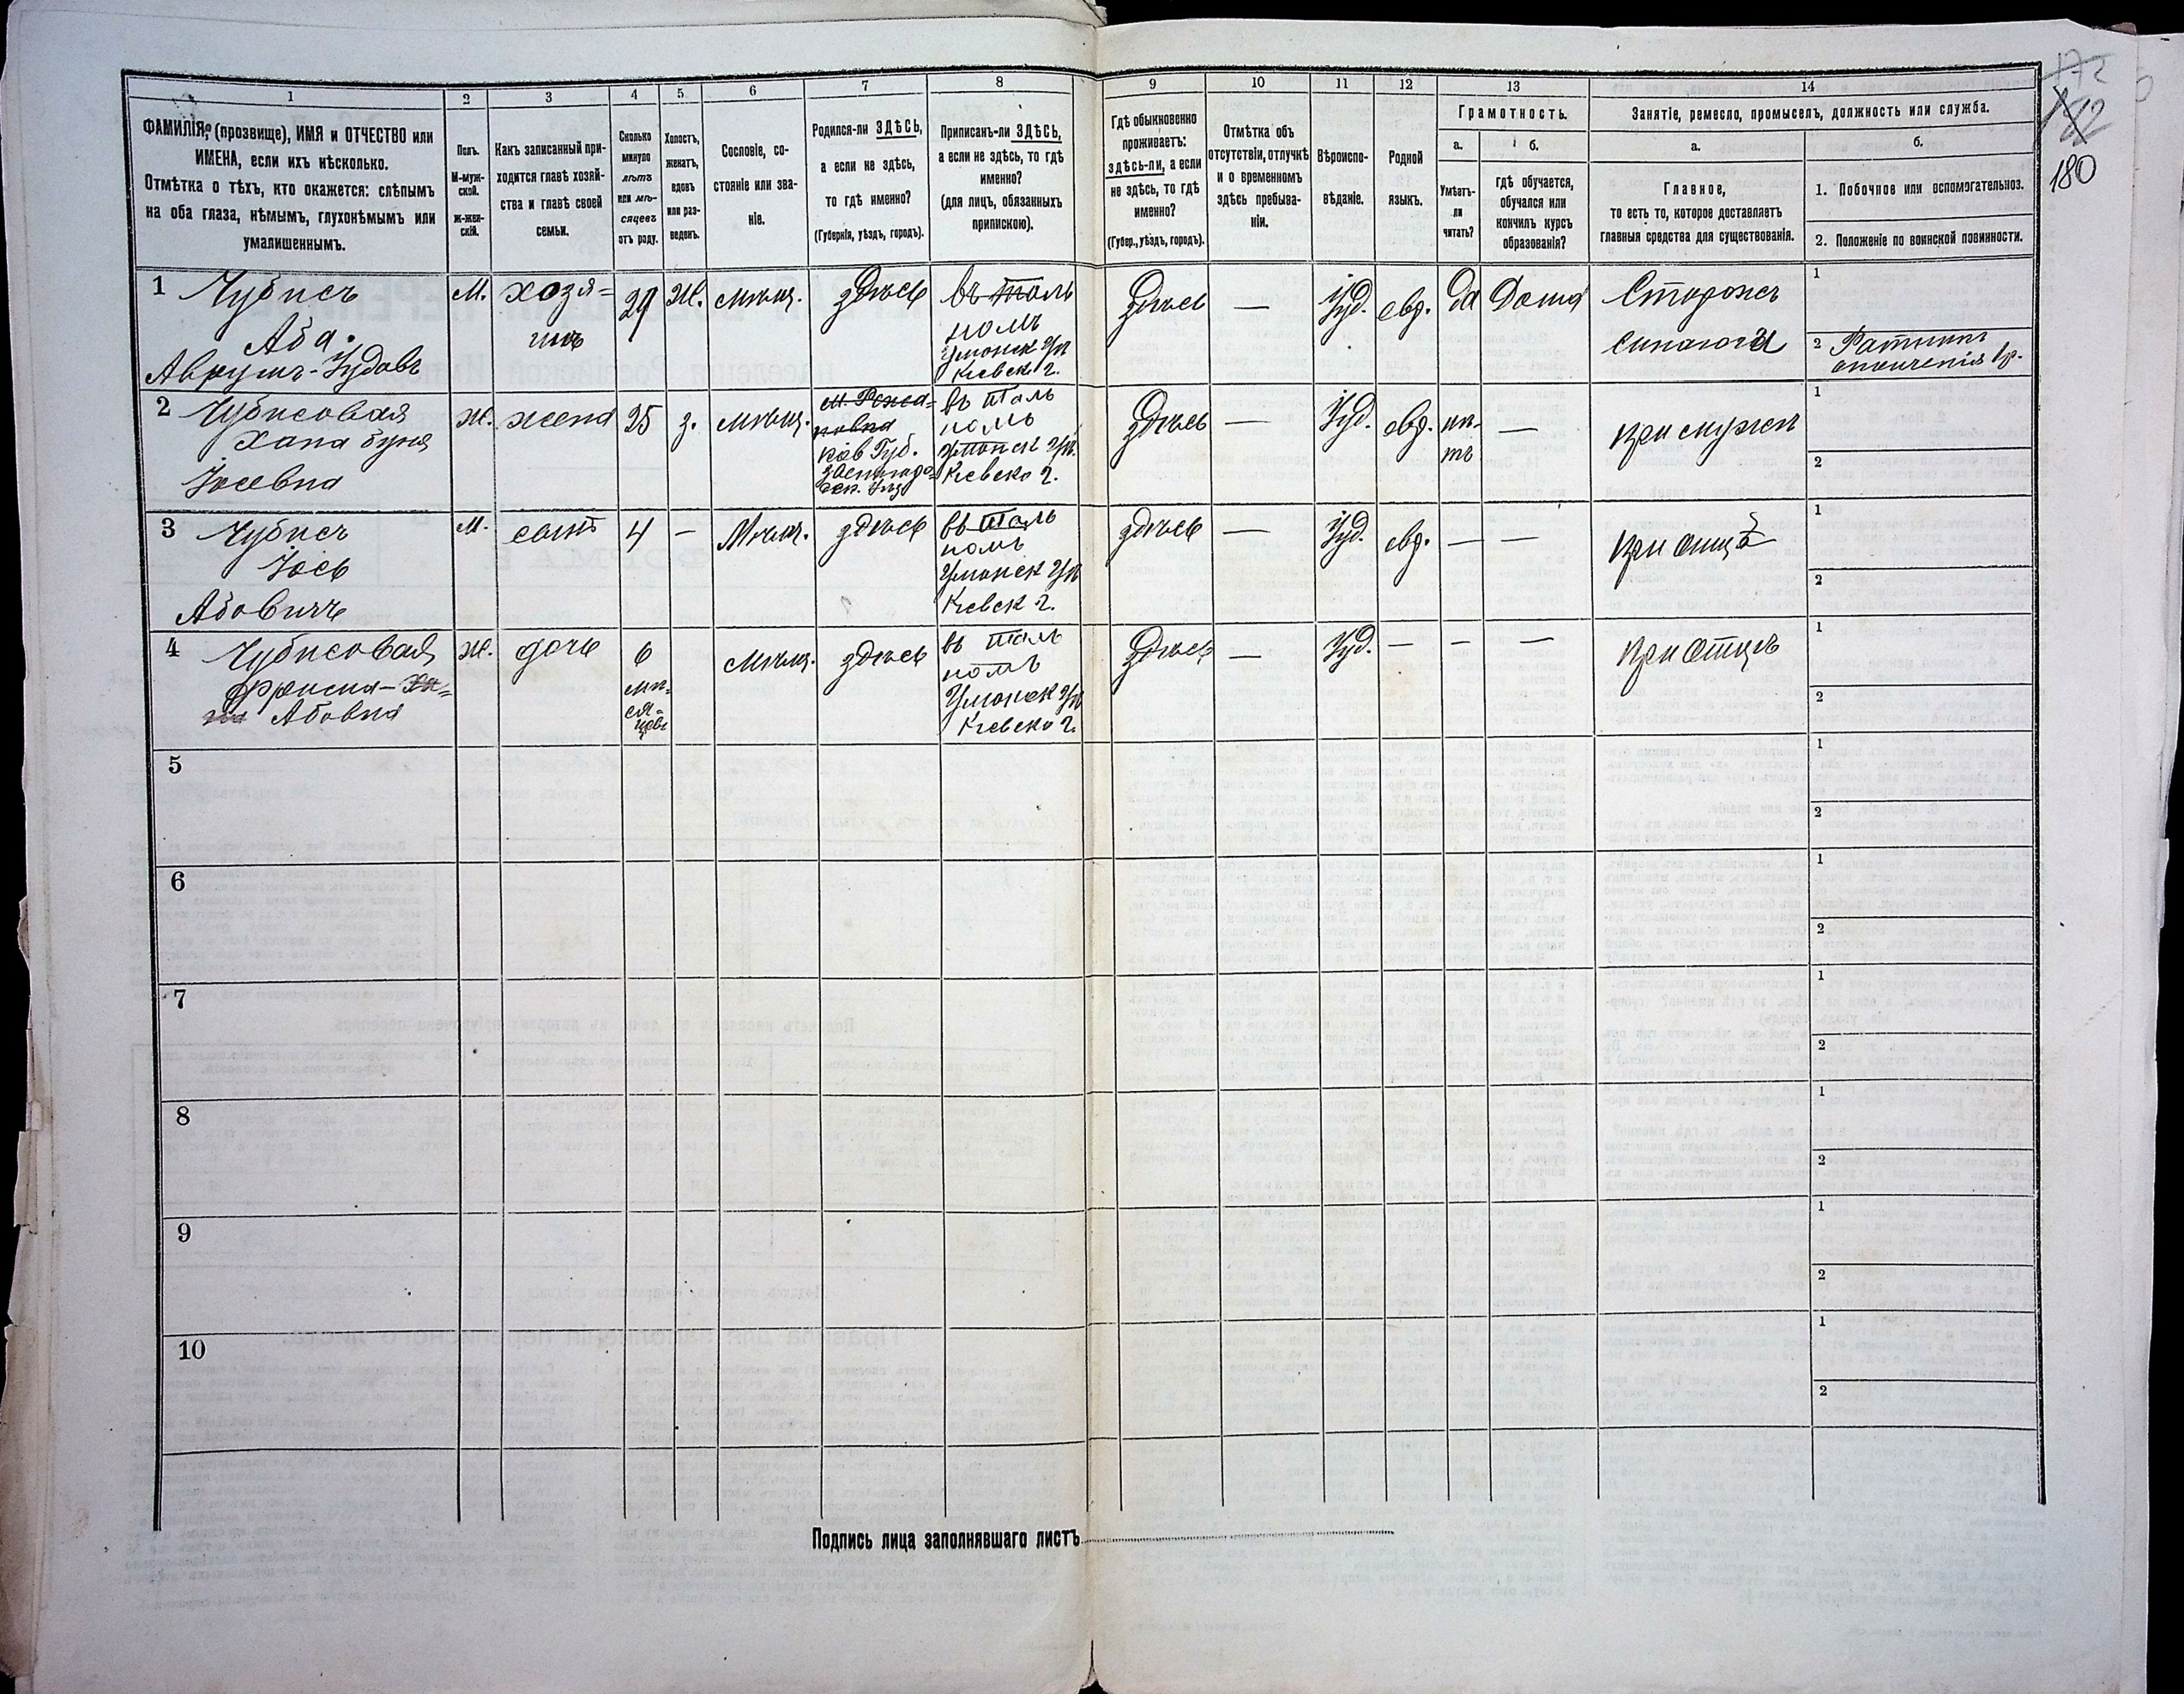 172
182
180
1 2 3 4 5 6 7 8 9 10 11 12 13 14
ФАМИЛІЯ, (прозвище), ИМЯ и ОТЧЕСТВО или
ИМЕНА, если ихъ нѣсколько.
Отмѣтка о тѣхъ, кто окажется: слѣпымъ
на оба глаза, нѣмымъ, глухонѣмымъ или
умалишеннымъ.
Полъ.
М-муж-
ской.
ж-жен-
скій.
Какъ записанный при-
ходится главѣ хозяй-
ства и главѣ своей
семьи.
Сколько
минуло
лѣтъ
или мѣ-
сяцевъ
отъ роду.
Холостъ,
женатъ,
вдовъ
или раз-
веденъ.
Сословіе, со-
стояніе или зва-
ніе.
Родился-ли ЗДѢСЬ,
а если не здѣсь,
то гдѣ именно?
(Губернія, уѣздъ, городъ).
Приписанъ-ли ЗДѢСЬ,
а если не здѣсь, то гдѣ
именно?
(для лицъ, обязанныхъ
припискою).
Гдѣ обыкновенно
проживаетъ:
здѣсь-ли, а если
не здѣсь, то гдѣ
именно?
(Губер., уѣздъ, городъ).
Отмѣтка объ
отсутствіи, отлучкѣ
и о временномъ
здѣсь пребыва-
ніи.
Вѣроиспо-
вѣданіе.
Родной
языкъ.
Грамотность.
а.
Умѣетъ-
ли
читать?
б.
гдѣ обучается,
обучался или
кончилъ курсъ
образованія?
Занятіе, ремесло, промыселъ, должность или служба.
а.
Главное,
то есть то, которое доставляетъ
главныя средства для существованія.
б.
1. Побочное или вспомогательное.
2. Положеніе по воинской повинности.
1 Чубисъ
Аба
Аврумъ-Іудовъ
М.
хозя=
инъ
29
Ж.
мѣщ.
здѣсь
въ Таль
номъ
Уманск Уѣ
Кіевск г.
Здѣсь
—
Іуд.
евр.
да
Дома
Сторожъ
Синагоги
1
2 Ратникъ
ополченія 1 р.
2 Чубисовая
Хана Буня
Іосевна
Ж.
жена
25
з.
мѣщ.
кіев Губ.
въ Таль
номъ
Уманск Уѣ.
Кіевско г.
Здѣсь
—
Іуд.
евр.
нѣ-
тъ
—
при мужѣ
1
2
3 Чубисъ
Іось
Абовичъ
М.
сынъ
4
—
Мѣщ.
здѣсь
въ Таль
номъ
Уманск Уѣ
Кіевск г.
здѣсь
—
Іуд.
евр.
—
—
при отцѣ
1
2
4 Чубисовая
Абовна
Ж.
дочь
6
мѣ-
ся-
цевъ
мѣщ.
здѣсь
въ Таль
номъ
Уманск Уѣ
Кіевско г.
Здѣсь
—
Іуд.
—
—
—
при Отцѣ
1
2
5
1
2
6
1
2
7
1
2
8
1
2
9
1
2
10
1
2
Подпись лица заполнявшаго листъ